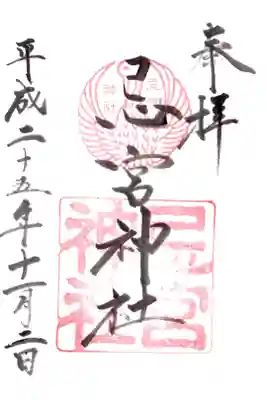 奉拝
忌宮神社
忌宮
神社
平成二十五年十一月二日